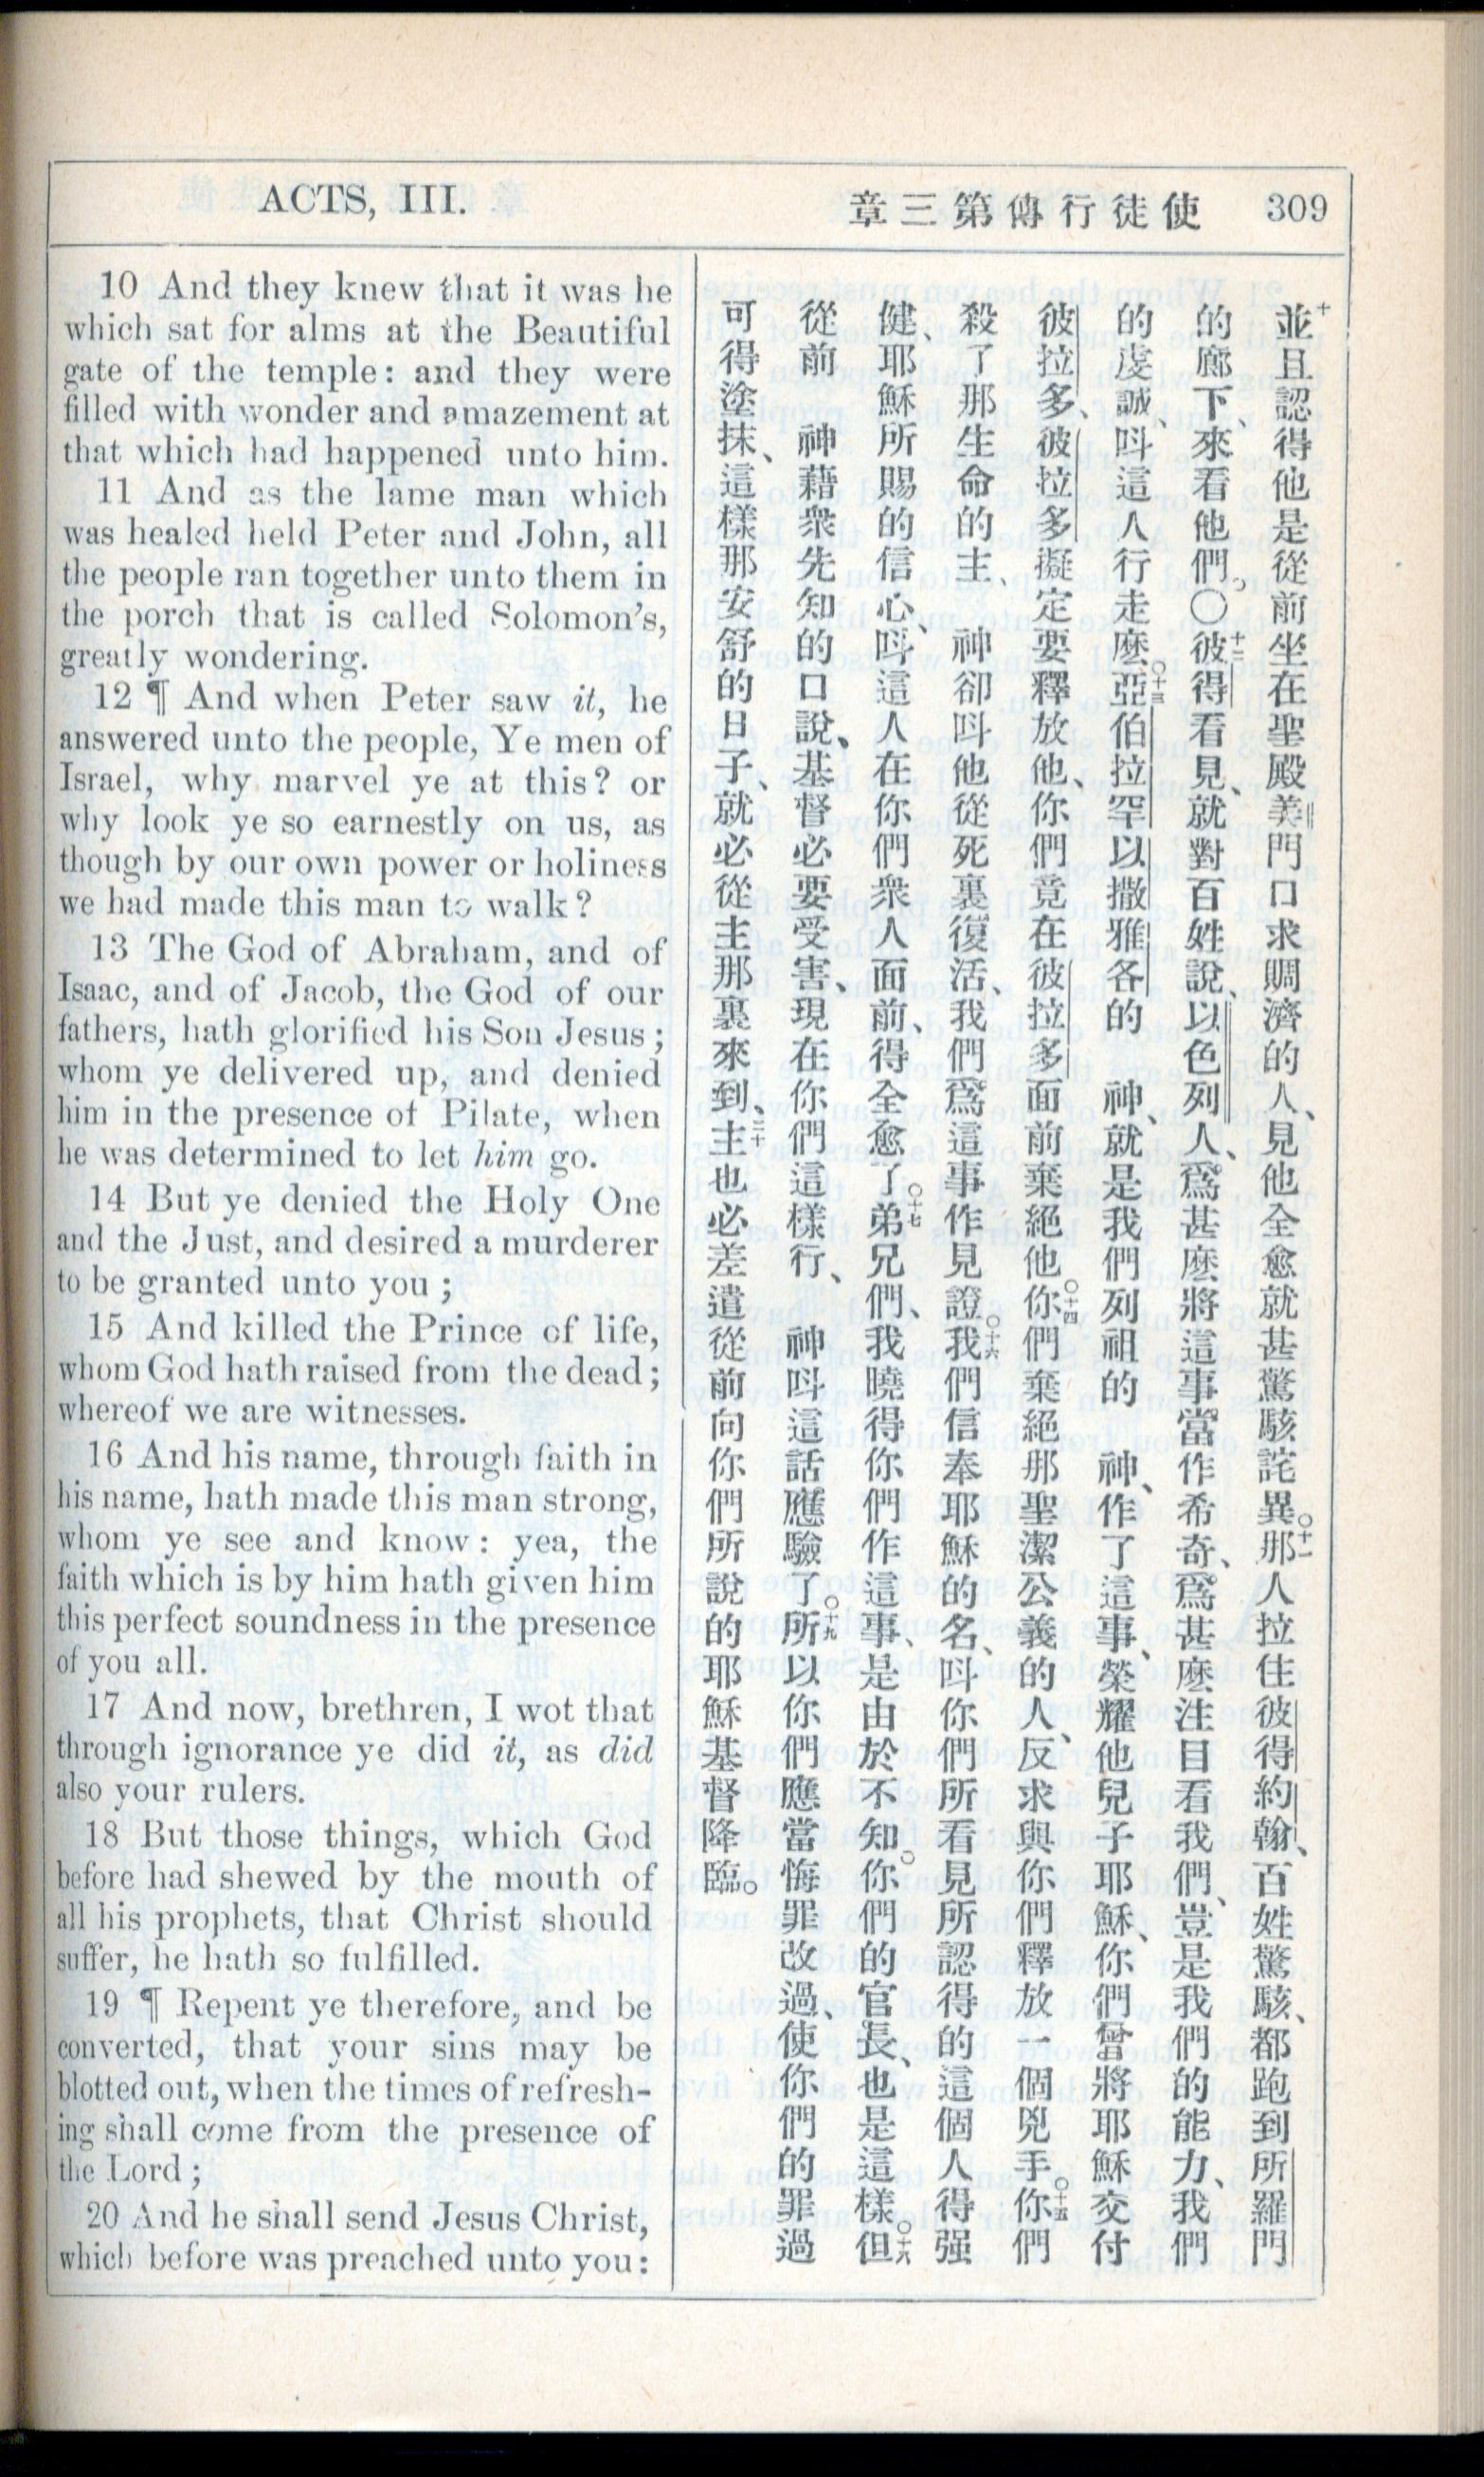 ACTS, III.
章三第傳行徒使
309
10 And they knew that it was he
which sat for alms at the Beautiful
gate of the temple: and they were
filled with wonder and amazement at
that which had happened unto him.
11 And as the lame man which
was healed held Peter and John, all
the people ran together unto them in
the porch that is called Solomon's,
greatly wondering.
12 ¶ And when Peter saw it, he
answered unto the people, Ye men of
Israel, why marvel ye at this? or
why look ye so earnestly on us, as
though by our own power or holiness
we had made this man to walk?
13 The God of Abraham, and of
Isaac, and of Jacob, the God of our
fathers, hath glorified his Son Jesus;
whom ye delivered up, and denied
him in the presence of Pilate, when
he was determined to let him go.
14 But ye denied the Holy One
and the Just, and desired a murderer
to be granted unto you;
15 And killed the Prince of life,
whom God hath raised from the dead;
whereof we are witnesses.
16 And his name, through faith in
his name, hath made this man strong,
whom ye see and know: yea, the
faith which is by him hath given him
this perfect soundness in the presence
of you all.
17 And now, brethren, I wot that
through ignorance ye did it, as did
also your rulers.
18 But those things, which God
before had shewed by the mouth of
all his prophets, that Christ should
suffer, he hath so fulfilled.
19 ¶ Repent ye therefore, and be
converted, that your sins may be
blotted out, when the times of refresh-
ing shall come from the presence of
the Lord;
20 And he shall send Jesus Christ,
which before was preached unto you:
十並且認得他是從前坐在聖殿美門口求賙濟的人、見他全愈就甚驚駭詫異。十一那人拉住彼得約翰、百姓驚駭、都跑到所羅門
的廊下、來看他們。〇十二彼得看見、就對百姓說以色列人、爲甚麽將這事當作希奇、爲甚麽注目看我們、豈是我們的能力、我們
的虔誠、呌這人行走麽。十三亞伯拉罕以撒雅各的　神、就是我們列祖的　神、作了這事、榮耀他兒子耶穌、你們曾將耶穌交付
彼拉多、彼拉多擬定要釋放他、你們竟在彼拉多面前棄絕他。十四你們棄絕那聖潔公義的人、反求與你們釋放一個兇手。十五你們
殺了那生命的主、　神卻呌他從死裏復活、我們爲這事作見證。十六我們信奉耶穌的名、呌你們所看見所認得的這個人得强
健、耶穌所賜的信心、呌這人在你們衆人面前、得全愈了。十七弟兄們、我曉得你們作這事、是由於不知。你們的官長、也是這樣。十八但
從前　神藉衆先知的口說、基督必要受害、現在你們這樣行、　神呌這話應驗了。十九所以你們應當悔罪改過、使你們的罪過
可得塗抹、這樣那安舒的日子、就必從主那裏來到、二十主也必差遣從前向你們所說的耶穌基督降臨。